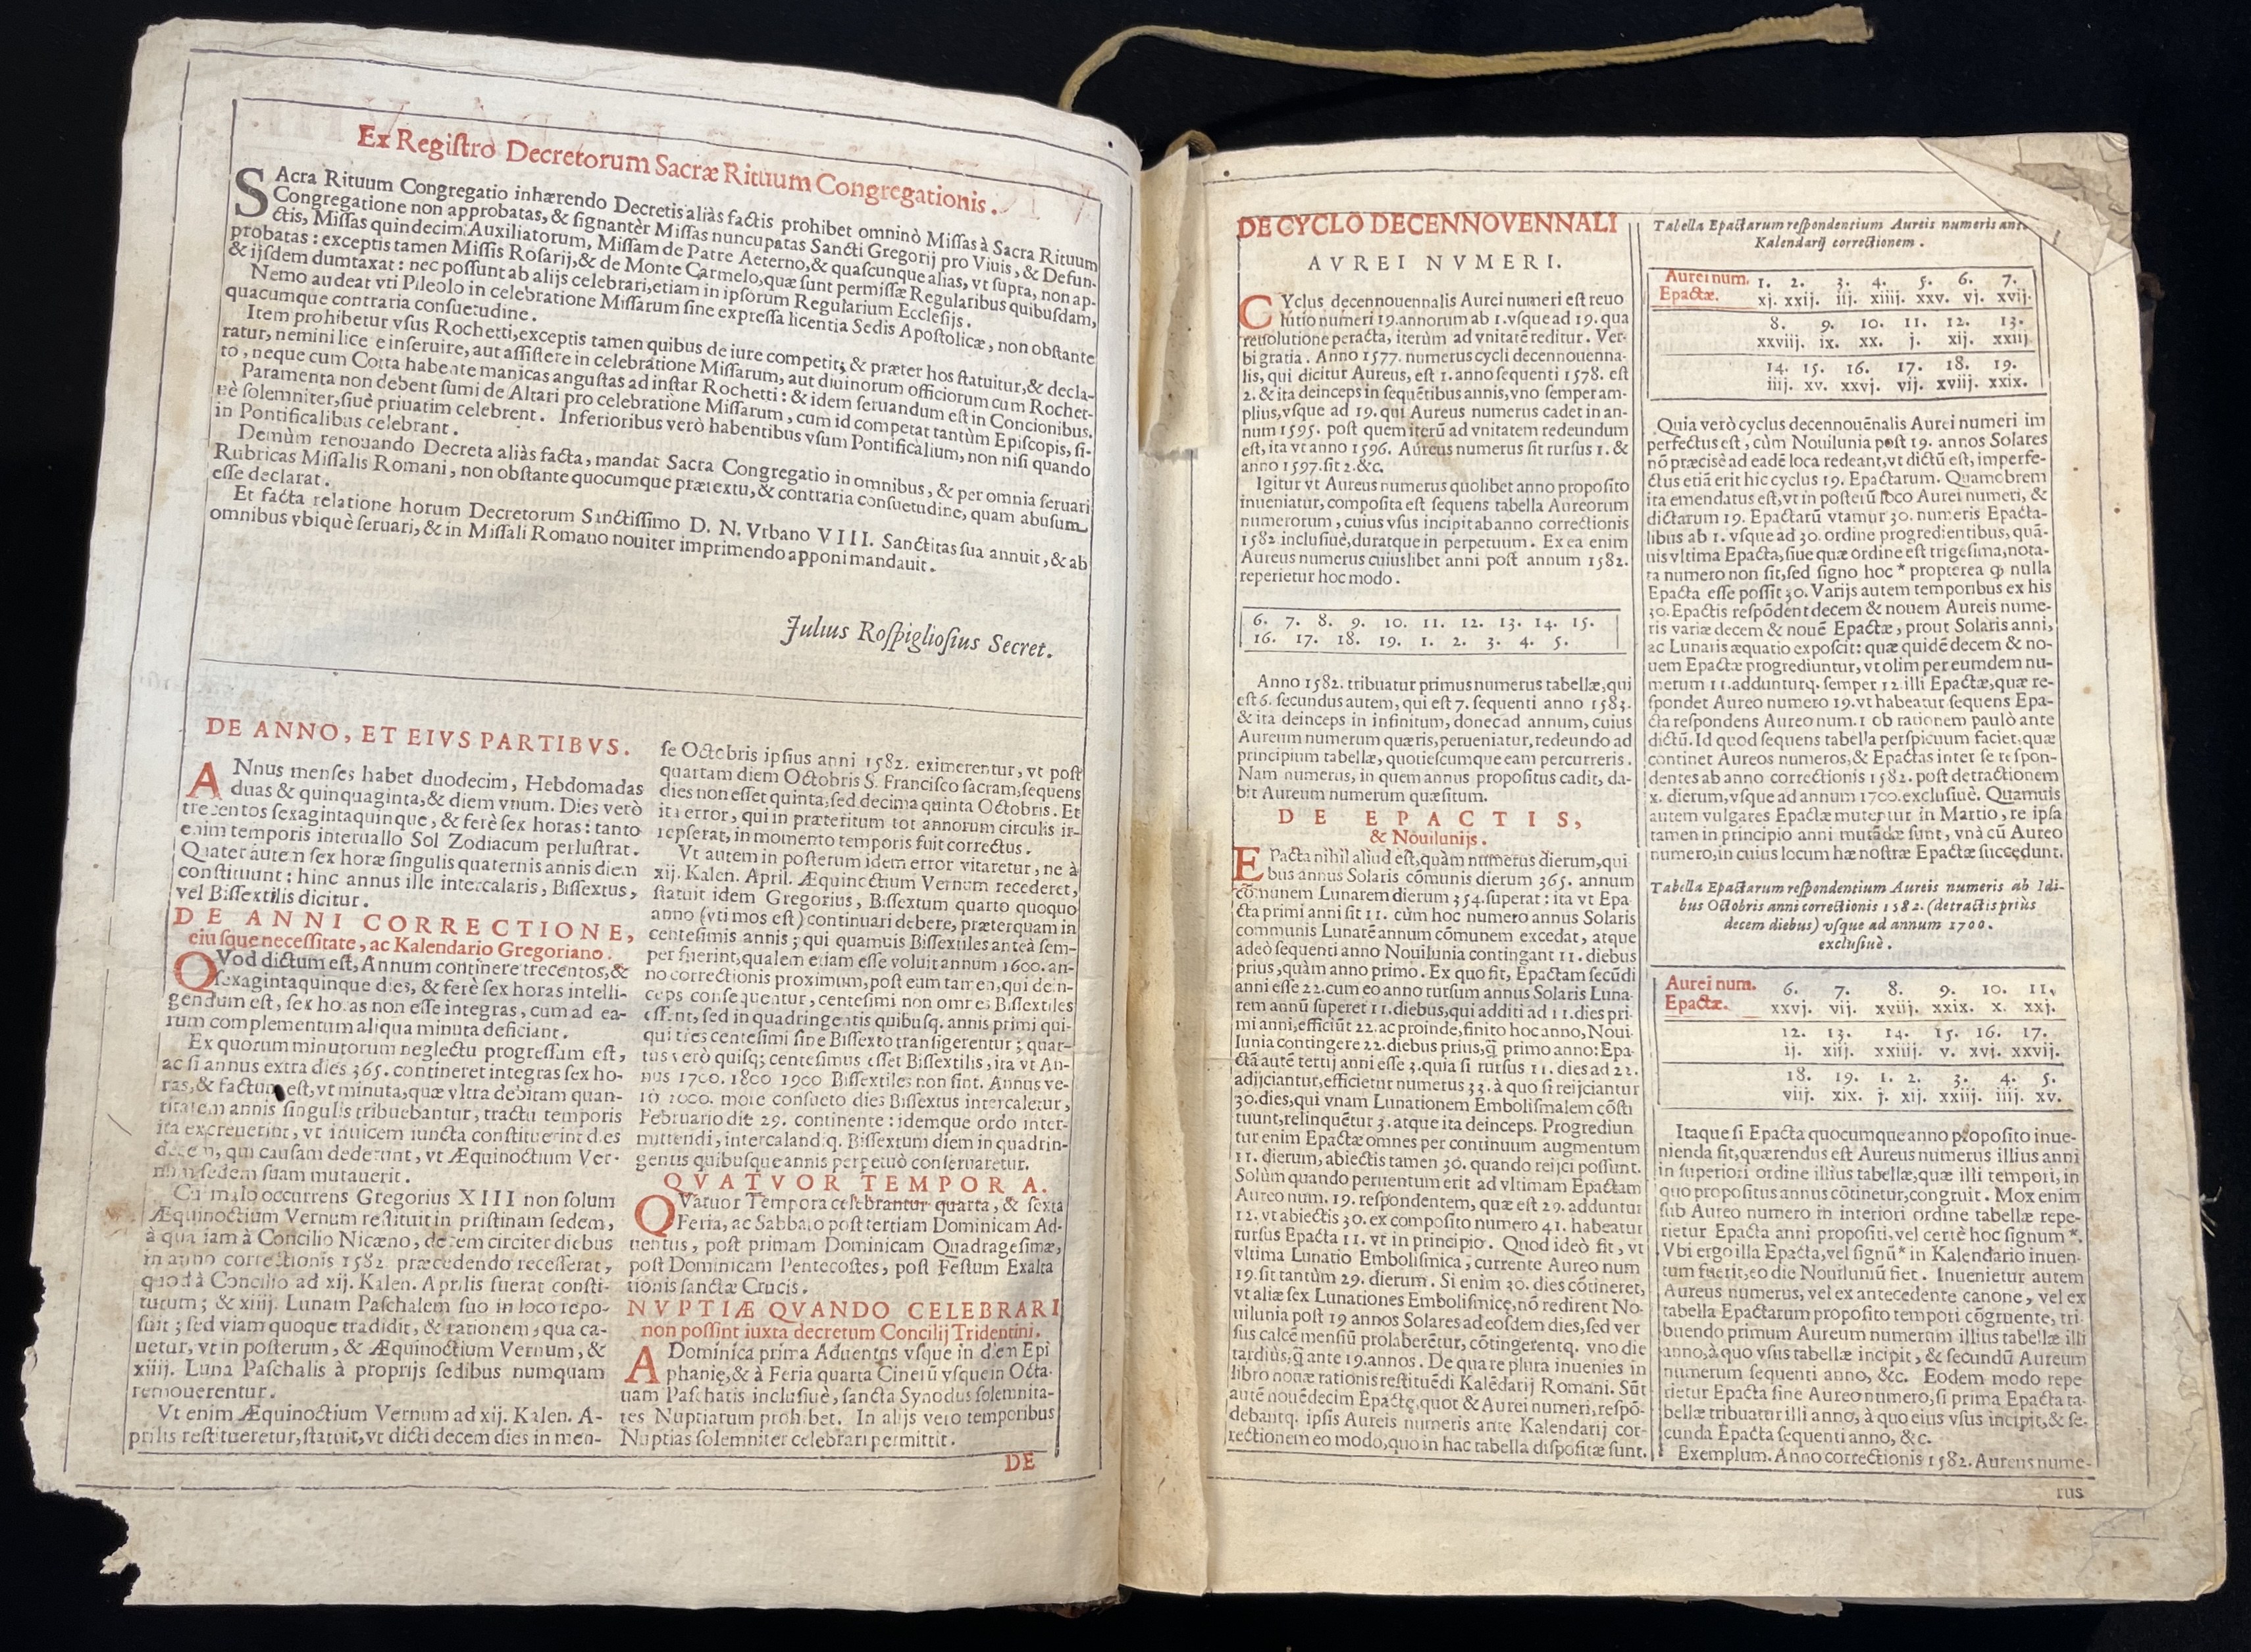 Ex Regiſtro Decretorum Sacræ Rituum Congregationis.
SAcra Rituum Congregatio inhærendo Decretis aliàs factis prohibet omninò Miſſas à Sacra Rituum
Congregatione non approbatas, & ſignantèr Miſſas nuncupatas Sancti Gregorij pro Viuis, & Defun-
ctis, Miſſas quindecim Auxiliatorum, Miſſam de Patre Aeterno, & quaſcunque alias, vt ſupra, non ap-
probatas: exceptis tamen Miſſis Roſarij, & de Monte Carmelo, quæ ſunt permiſſæ Regularibus quibuſdam,
& ijſdem dumtaxat: nec poſſunt ab alijs celebrari, etiam in ipſorum Regularium Eccleſijs.
Nemo audeat vti Pileolo in celebratione Miſſarum ſine expreſſa licentia Sedis Apoſtolicæ, non obſtante
quacumque contraria conſuetudine.
Item prohibetur vſus Rochetti, exceptis tamen quibus de iure competit; & præter hos ſtatuitur, & decla-
ratur, nemini lice e inſeruire, aut aſſiſtere in celebratione Miſſarum, aut diuinorum officiorum cum Rochet-
to, neque cum Cotta habente manicas anguſtas ad inſtar Rochetti: & idem ſeruandum eſt in Concionibus.
Paramenta non debent ſumi de Altari pro celebratione Miſſarum, cum id competat tantùm Epiſcopis, ſi-
uè ſolemniter, ſiuè priuatim celebrent. Inferioribus verò habentibus vſum Pontificalium, non niſi quando
in Pontificalibus celebrant.
Demùm renouando Decreta aliàs facta, mandat Sacra Congregatio in omnibus, & per omnia ſeruari
Rubricas Miſſalis Romani, non obſtante quocumque prætextu, & contraria conſuetudine, quam abuſum
eſſe declarat.
Et facta relatione horum Decretorum Sanctiſſimo D. N. Vrbano VIII. Sanctitas ſua annuit, & ab
omnibus vbiquè ſeruari, & in Miſſali Romano nouiter imprimendo apponi mandauit.
Julius Roſpiglioſius Secret.
DE ANNO, ET EIVS PARTIBVS.
ANnus menſes habet duodecim, Hebdomadas
duas & quinquaginta, & diem vnum. Dies verò
trecentos ſexagintaquinque, & ferè ſex horas: tanto
enim temporis interuallo Sol Zodiacum perluſtrat.
Quater autem ſex horæ ſingulis quaternis annis diem
conſtituunt: hinc annus ille intercalaris, Biſſextus,
vel Biſſextilis dicitur.
DE ANNI CORRECTIONE,
eiuſque neceſſitate, ac Kalendario Gregoriano.
QVod dictum eſt, Annum continere trecentos, &
ſexagintaquinque dies, & ferè ſex horas intelli-
gendum eſt, ſex horas non eſſe integras, cum ad ea-
rum complementum aliqua minuta deficiant.
Ex quorum minutorum neglectu progreſſum eſt,
ac ſi annus extra dies 365. contineret integras ſex ho-
ras, & factum eſt, vt minuta, quæ vltra debitam quan-
titatem annis ſingulis tribuebantur, tractu temporis
ita excreuerint, vt inuicem iuncta conſtituerint dies
decem, qui cauſam dederunt, vt Æquinoctium Ver-
num ſedem ſuam mutauerit.
Cui malo occurrens Gregorius XIII non ſolum
Æquinoctium Vernum reſtituit in priſtinam ſedem,
à qua iam à Concilio Nicæno, decem circiter diebus
in anno correctionis 1582. præcedendo receſſerat,
quod à Concilio ad xij. Kalen. Aprilis fuerat conſti-
tutum; & xiiij. Lunam Paſchalem ſuo in loco repo-
ſuit; ſed viam quoque tradidit, & rationem, qua ca-
uetur, vt in poſterum, & Æquinoctium Vernum, &
xiiij. Luna Paſchalis à proprijs ſedibus numquam
remouerentur.
Vt enim Æquinoctium Vernum ad xij. Kalen. A-
prilis reſtitueretur, ſtatuit, vt dicti decem dies in men-
ſe Octobris ipſius anni 1582. eximerentur, vt poſt
quartam diem Octobris S. Franciſco ſacram, ſequens
dies non eſſet quinta, ſed decima quinta Octobris. Et
ita error, qui in præteritum tot annorum circulis ir-
repſerat, in momento temporis fuit correctus.
Vt autem in poſterum idem error vitaretur, ne à
xij. Kalen. April. Æquinoctium Vernum recederet,
ſtatuit idem Gregorius, Biſſextum quarto quoquo
anno (vti mos eſt) continuari debere, præterquam in
centeſimis annis; qui quamuis Biſſextiles anteà ſem-
per fuerint, qualem etiam eſſe voluit annum 1600. an-
no correctionis proximum, poſt eum tamen, qui dein-
ceps conſequentur, centeſimi non omnes Biſſextiles
eſſent, ſed in quadringentis quibuſq. annis primi qui-
qui tres centeſimi ſine Biſſexto tranſigerentur; quar-
tus verò quiſq; centeſimus eſſet Biſſextilis, ita vt An-
nus 1700. 1800 1900 Biſſextiles non ſint. Annus ve-
rò 2000. more conſueto dies Biſſextus intercaletur,
Februario die 29. continente: idemque ordo inter-
mittendi, intercalandiq. Biſſextum diem in quadrin-
gentis quibuſque annis perpetuò conſeruaretur.
QVATVOR TEMPORA.
QVatuor Tempora celebrantur quarta, & ſexta
Feria, ac Sabbato poſt tertiam Dominicam Ad-
uentus, poſt primam Dominicam Quadrageſimæ,
poſt Dominicam Pentecoſtes, poſt Feſtum Exalta
tionis ſanctæ Crucis.
NVPTIÆ QVANDO CELEBRARI
non poſſint iuxta decretum Concilij Tridentini.
A Dominica prima Aduentus vſque in diem Epi
phaniȩ, & à Feria quarta Cinerū vſque in Octa-
uam Paſchatis incluſiuè, ſancta Synodus ſolemnita-
tes Nuptiarum prohibet. In alijs vero temporibus
Nuptias ſolemniter celebrari permittit.
DE
DE CYCLO DECENNOVENNALI
AVREI NVMERI.
CYclus decennouennalis Aurei numeri eſt reuo
lutio numeri 19. annorum ab 1. vſque ad 19. qua
reuolutione peracta, iterùm ad vnitatē reditur. Ver-
bi gratia. Anno 1577. numerus cycli decennouenna-
lis, qui dicitur Aureus, eſt 1. anno ſequenti 1578. eſt
2. & ita deinceps in ſequētibus annis, vno ſemper am-
plius, vſque ad 19. qui Aureus numerus cadet in an-
num 1595. poſt quem iterū ad vnitatem redeundum
eſt, ita vt anno 1596. Aureus numerus ſit rurſus 1. &
anno 1597. ſit 2. &c.
Igitur vt Aureus numerus quolibet anno propoſito
inueniatur, compoſita eſt ſequens tabella Aureorum
numerorum, cuius vſus incipit ab anno correctionis
1582 incluſiuè, duratque in perpetuum. Ex ea enim
Aureus numerus cuiuslibet anni poſt annum 1582.
reperietur hoc modo.
6. 7. 8. 9. 10. 11. 12. 13. 14. 15.
16. 17. 18. 19. 1. 2. 3. 4. 5.
Anno 1582. tribuatur primus numerus tabellæ, qui
eſt 6. ſecundus autem, qui eſt 7. ſequenti anno 1583.
& ita deinceps in infinitum, donec ad annum, cuius
Aureum numerum quæris, perueniatur, redeundo ad
principium tabellæ, quotieſcumque eam percurreris.
Nam numerus, in quem annus propoſitus cadit, da-
bit Aureum numerum quæſitum.
DE EPACTIS,
& Nouilunijs.
EPacta nihil aliud eſt, quàm numerus dierum, qui
bus annus Solaris cōmunis dierum 365. annum
cōmunem Lunarem dierum 354. ſuperat: ita vt Epa-
cta primi anni ſit 11. cùm hoc numero annus Solaris
communis Lunarē annum cōmunem excedat, atque
adeò ſequenti anno Nouilunia contingant 11. diebus
prius, quàm anno primo. Ex quo fit, Epactam ſecūdi
anni eſſe 22. cum eo anno rurſum annus Solaris Luna-
rem annū ſuperet 11. diebus, qui additi ad 11. dies pri-
mi anni, efficiūt 22. ac proinde, finito hoc anno, Noui-
lunia contingere 22. diebus prius, q̄ primo anno: Epa-
ctā autē tertij anni eſſe 3. quia ſi rurſus 11. dies ad 22.
adijciantur, efficietur numerus 33. à quo ſi reijciantur
30. dies, qui vnam Lunationem Emboliſmalem cōſti
tuunt, relinquētur 3. atque ita deinceps. Progrediun
tur enim Epactæ omnes per continuum augmentum
11. dierum, abiectis tamen 30. quando reijci poſſunt.
Solùm quando peruentum erit ad vltimam Epactam
Aureo num. 19. reſpondentem, quæ eſt 29. adduntur
12. vt abiectis 30. ex compoſito numero 41. habeatur
rurſus Epacta 11. vt in principio. Quod ideò fit, vt
vltima Lunatio Emboliſmica, currente Aureo num
19. ſit tantùm 29. dierum. Si enim 30. dies cōtineret,
vt aliæ ſex Lunationes Emboliſmicȩ, nō redirent No-
uilunia poſt 19 annos Solares ad eoſdem dies, ſed ver
ſus calcē menſiū prolaberētur, cōtingerentq. vno die
tardiùs, q̄ ante 19. annos. De qua re plura inuenies in
libro nouæ rationis reſtituēdi Kalēdarij Romani. Sūt
autē nouēdecim Epactȩ, quot & Aurei numeri, reſpō-
debantq. ipſis Aureis numeris ante Kalendarij cor-
rectionem eo modo, quo in hac tabella diſpoſitæ ſunt.
Tabella Epactarum reſpondentium Aureis numeris ante
Kalendarij correctionem.
Aurei num. 1. 2. 3. 4. 5. 6. 7.
Epactæ. xj. xxij. iij. xiiij. xxv. vj. xvij.
8. 9. 10. 11. 12. 13.
xxviij. ix. xx. j. xij. xxiij
14. 15. 16. 17. 18. 19.
iiij. xv. xxvj. vij. xviij. xxix.
Quia verò cyclus decennouēnalis Aurei numeri im
perfectus eſt, cùm Nouilunia poſt 19. annos Solares
nō præcisè ad eadē loca redeant, vt dictū eſt, imperfe-
ctus etiā erit hic cyclus 19. Epactarum. Quamobrem
ita emendatus eſt, vt in poſterū loco Aurei numeri, &
dictarum 19. Epactarū vtamur 30. numeris Epacta-
libus ab 1. vſque ad 30. ordine progredientibus, quā-
uis vltima Epacta, ſiue quæ ordine eſt trigeſima, nota-
ta numero non ſit, ſed ſigno hoc * propterea ꝙ nulla
Epacta eſſe poſſit 30. Varijs autem temporibus ex his
30. Epactis reſpōdent decem & nouem Aureis nume-
ris variæ decem & nouē Epactæ, prout Solaris anni,
ac Lunaris æquatio expoſcit: quæ quidē decem & no-
uem Epactæ progrediuntur, vt olim per eumdem nu-
merum 11. addunturq. ſemper 12. illi Epactæ, quæ re-
ſpondet Aureo numero 19. vt habeatur ſequens Epa-
cta reſpondens Aureo num. 1 ob rationem paulò ante
dictū. Id quod ſequens tabella perſpicuum faciet, quæ
continet Aureos numeros, & Epactas inter ſe reſpon-
dentes ab anno correctionis 1582. poſt detractionem
x. dierum, vſque ad annum 1700. excluſiuè. Quamuis
autem vulgares Epactæ mutentur in Martio, re ipſa
tamen in principio anni mutādæ ſunt, vnà cū Aureo
numero, in cuius locum hæ noſtræ Epactæ ſuccedunt.
Tabella Epactarum reſpondentium Aureis numeris ab Idi-
bus Octobris anni correctionis 1582. (detractis priùs
decem diebus) vſque ad annum 1700.
excluſiuè.
Aurei num. 6. 7. 8. 9. 10. 11.
Epactæ. xxvj. vij. xviij. xxix. x. xxj.
12. 13. 14. 15. 16. 17.
ij. xiij. xxiiij. v. xvj. xxvij.
18. 19. 1. 2. 3. 4. 5.
viij. xix. j. xij. xxiij. iiij. xv.
Itaque ſi Epacta quocumque anno propoſito inue-
nienda ſit, quærendus eſt Aureus numerus illius anni
in ſuperiori ordine illius tabellæ, quæ illi tempori, in
quo propoſitus annus cōtinetur, congruit. Mox enim
ſub Aureo numero in interiori ordine tabellæ repe-
rietur Epacta anni propoſiti, vel certè hoc ſignum *.
Vbi ergo illa Epacta, vel ſignū * in Kalendario inuen-
tum fuerit, eo die Nouiluniū fiet. Inuenietur autem
Aureus numerus, vel ex antecedente canone, vel ex
tabella Epactarum propoſito tempori cōgruente, tri-
buendo primum Aureum numerum illius tabellæ illi
anno, à quo vſus tabellæ incipit, & ſecundū Aureum
numerum ſequenti anno, &c. Eodem modo repe-
rietur Epacta ſine Aureo numero, ſi prima Epacta ta-
bellæ tribuatur illi anno, à quo eius vſus incipit, & ſe-
cunda Epacta ſequenti anno, &c.
Exemplum. Anno correctionis 1582. Aureus nume-
rus